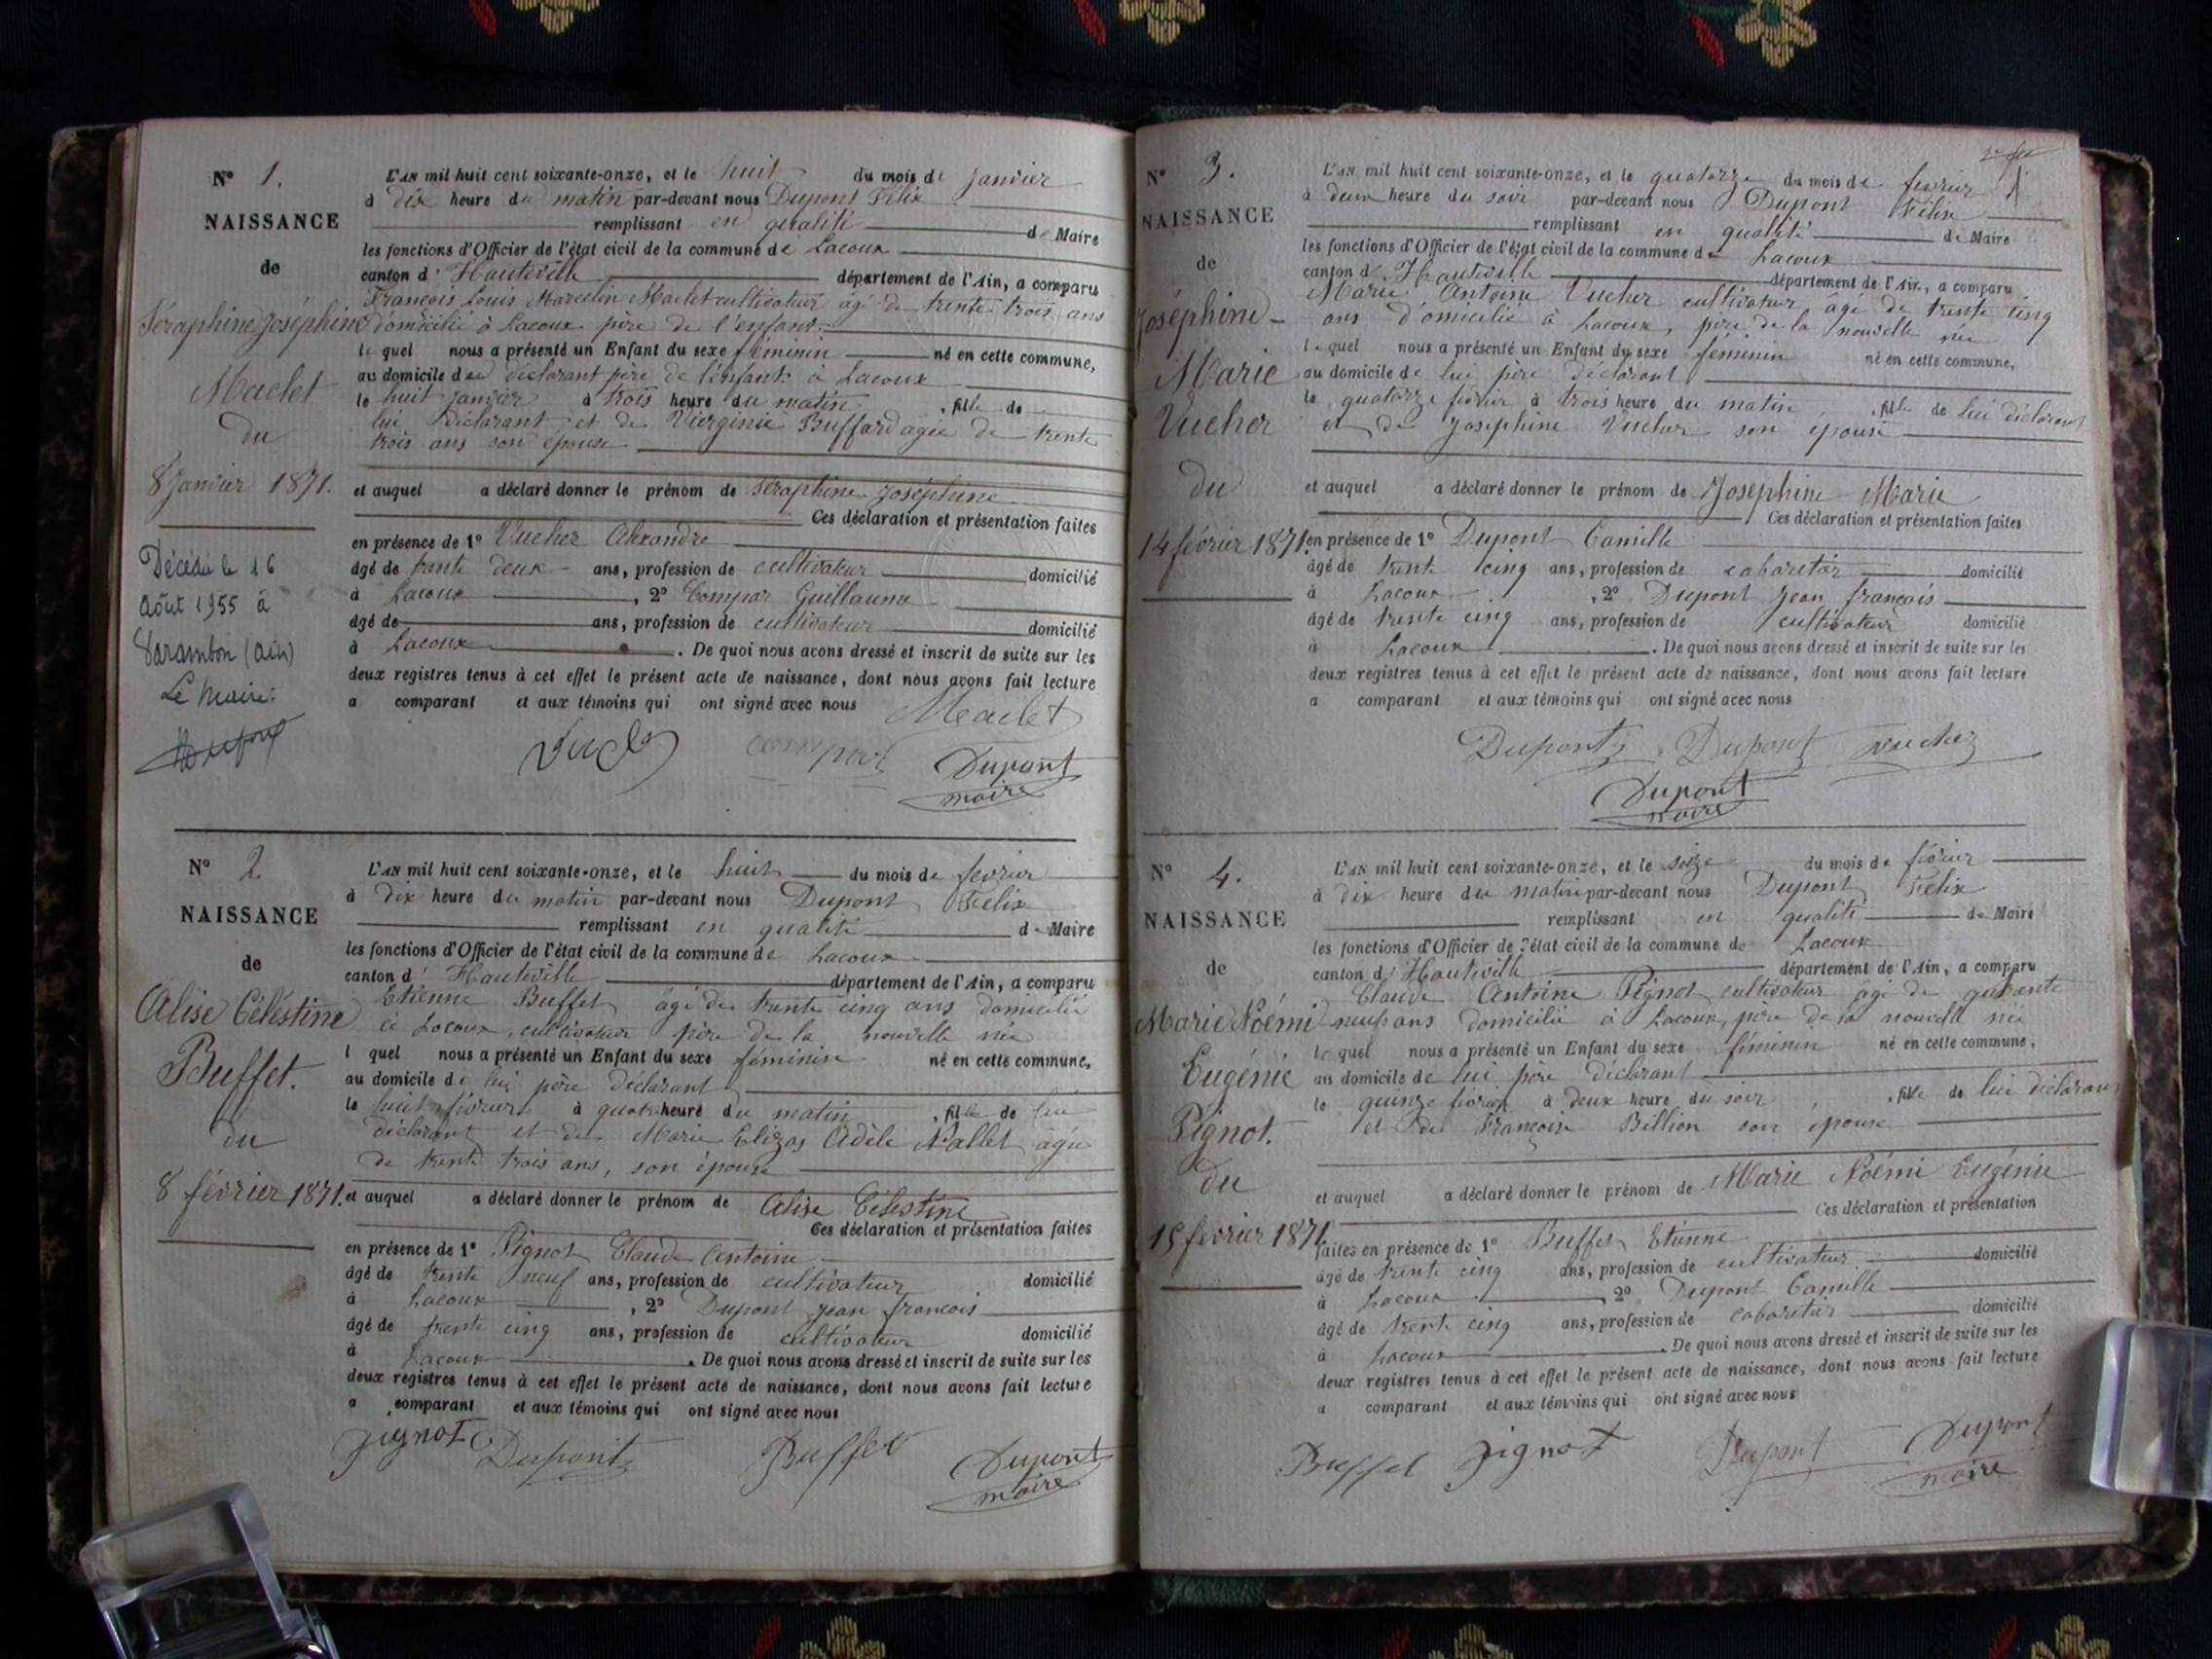 N° 1.
NAISSANCE
de
Séraphine Joséphine
Maclet
du
8 Janvier 1871.
Décédée le 16
Août 1955 à
Varambon (Ain)
Le Maire:
L'AN mil huit cent soixante-onze, et le huit du mois de Janvier
à dix heure du matin par-devant nous Dupont Félix
remplissant en qualité de Maire
les fonctions d'Officier de l'état civil de la commune de Lacoux
canton d' Hauteville département de l'Ain, a comparu
François Louis Marcelin Maclet cultivateur âgé de trente trois ans
domicilié à Lacoux père de l'enfant
le quel nous a présenté un Enfant du sexe féminin né en cette commune,
au domicile du déclarant père de l'enfant à Lacoux
le huit janvier à trois heure du matin, fille de
lui déclarant et de Virginie Buffard agée de trente
trois ans son épouse
et auquel a déclaré donner le prénom de Séraphine Joséphine
Ces déclaration et présentation faites
en présence de 1° Vucher Alexandre
âgé de trente deux ans, profession de cultivateur domicilié
à Lacoux, 2° Compar Guillaume
âgé de ans, profession de cultivateur domicilié
à Lacoux. De quoi nous avons dressé et inscrit de suite sur les
deux registres tenus à cet effet le présent acte de naissance, dont nous avons fait lecture
a comparant et aux témoins qui ont signé avec nous
Maclet
compar Dupont
maire
N° 2.
NAISSANCE
de
Alise Céléstine
Buffet.
du
8 février 1871.
L'AN mil huit cent soixante-onze, et le huit du mois de fevrier
à dix heure du matin par-devant nous Dupont Felix
remplissant en qualité de Maire
les fonctions d'Officier de l'état civil de la commune de Lacoux
canton d' Hauteville département de l'Ain, a comparu
Etienne Buffet âgé de trente cinq ans domicilié
à Lacoux, cultivateur père de la nouvelle née
l quel nous a présenté un Enfant du sexe féminin né en cette commune,
au domicile de lui père déclarant
le huit février à quatre heure du matin, fille de lui
déclarant et de Marie Adèle Nallet âgée
de trente trois ans, son épouse
et auquel a déclaré donner le prénom de Alise Célestine
Ces déclaration et présentation faites
en présence de 1° Pignot Claude Antoine
âgé de trente neuf ans, profession de cultivateur domicilié
à Lacoux, 2° Dupont Jean françois
âgé de trente cinq ans, profession de cultivateur domicilié
à Lacoux. De quoi nous avons dressé et inscrit de suite sur les
deux registres tenus à cet effet le présent acte de naissance, dont nous avons fait lecture
a comparant et aux témoins qui ont signé avec nous
pignot Dupont Buffet Dupont
maire
N° 3.
NAISSANCE
de
Joséphine
Marie
Vucher
du
14 février 1871.
L'AN mil huit cent soixante-onze, et le quatorze du mois de février
à deux heure du soir par-devant nous Dupont Félix
remplissant en qualité de Maire
les fonctions d'Officier de l'état civil de la commune de Lacoux
canton d' Hauteville département de l'Ain, a comparu
Marie Antoine Vucher cultivateur âgé de trente cinq
ans domicilié à Lacoux, père de la nouvelle née
le quel nous a présenté un Enfant du sexe féminin né en cette commune,
au domicile de lui père déclarant
le quatorze février à trois heure du matin, fille de lui déclarant
et de Joséphine Vucher son épouse
et auquel a déclaré donner le prénom de Joséphine Marie
Ces déclaration et présentation faites
en présence de 1° Dupont Camille
âgé de trente cinq ans, profession de cabaretier domicilié
à Lacoux, 2° Dupont Jean françois
âgé de trente cinq ans, profession de cultivateur domicilié
à Lacoux. De quoi nous avons dressé et inscrit de suite sur les
deux registres tenus à cet effet le présent acte de naissance, dont nous avons fait lecture
a comparant et aux témoins qui ont signé avec nous
Dupont Dupont Vucher
Dupont
maire
N° 4.
NAISSANCE
de
Marie Noémi
Eugénie
Pignot.
du
15 fevrier 1871.
L'AN mil huit cent soixante-onze, et le seize du mois de février
à dix heure du matin par-devant nous Dupont Felix
remplissant en qualité de Maire
les fonctions d'Officier de l'état civil de la commune de Lacoux
canton d' Hauteville département de l'Ain, a comparu
Claude Antoine Pignot cultivateur âgé de quarente
neuf ans domicilié à Lacoux, père de la nouvelle née
le quel nous a présenté un Enfant du sexe féminin né en cette commune,
au domicile de lui père déclarant
le quinze février à deux heure du soir, fille de lui déclarant
et de Françoise Billion son épouse
et auquel a déclaré donner le prénom de Marie Noémi Eugénie
Ces déclaration et présentation
faites en présence de 1° Buffet Etienne
âgé de trente cinq ans, profession de cultivateur domicilié
à Lacoux 2° Dupont Camille
âgé de trente cinq ans, profession de cabaretier domicilié
à Lacoux. De quoi nous avons dressé et inscrit de suite sur les
deux registres tenus à cet effet le présent acte de naissance, dont nous avons fait lecture
a comparant et aux témoins qui ont signé avec nous
Buffet pignot Dupont Dupont
maire